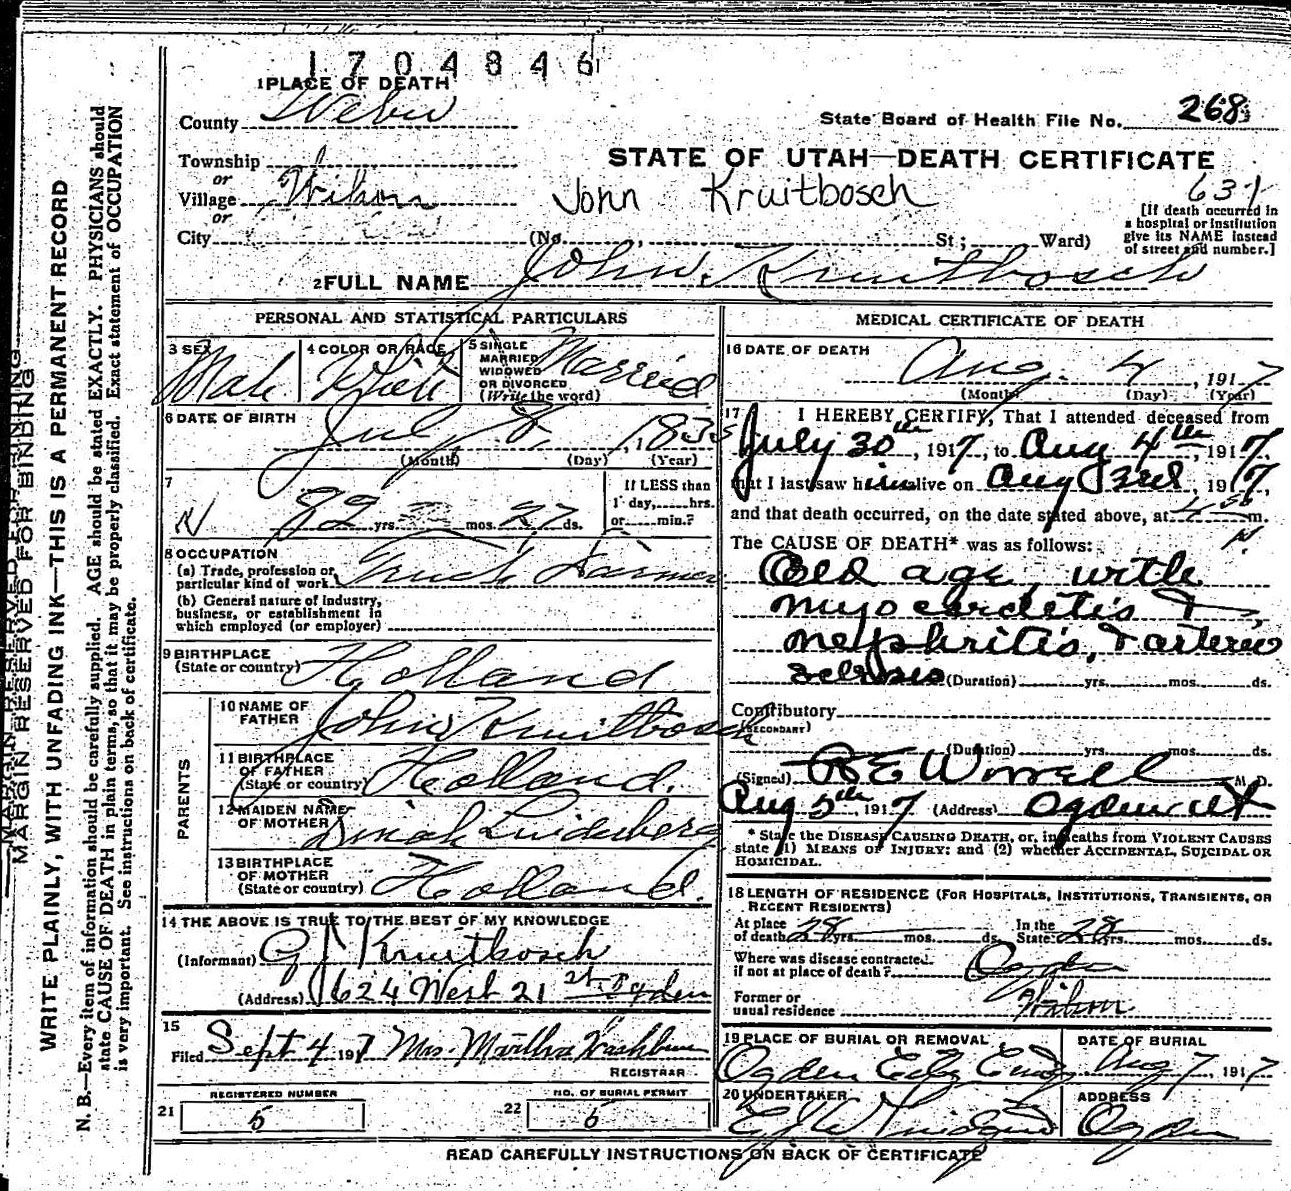 1704846
1 PLACE OF DEATH
County Weber
State Board of Health File No. 268
Township
or
Village Wilson
or
City
STATE OF UTAH—DEATH CERTIFICATE
John Kruitbosch
631
[If death occurred in a hospital or institution give its NAME instead of street and number.]
(No. St; Ward)
2 FULL NAME John Kruitbosch
PERSONAL AND STATISTICAL PARTICULARS
3 SEX Male
4 COLOR OR RACE White
5 SINGLE MARRIED WIDOWED OR DIVORCED (Write the word) Married
6 DATE OF BIRTH July 8, 1835
(Month) (Day) (Year)
7
82 yrs. mos. 27 ds.
If LESS than
1 day, hrs.
or min.?
8 OCCUPATION
(a) Trade, profession or
particular kind of work Truck Farmer
(b) General nature of industry,
business, or establishment in
which employed (or employer)
9 BIRTHPLACE
(State or country) Holland
PARENTS
10 NAME OF
FATHER John Kruitbosch
11 BIRTHPLACE
OF FATHER
(State or country) Holland.
12 MAIDEN NAME
OF MOTHER Dinah
13 BIRTHPLACE
OF MOTHER
(State or country) Holland.
14 THE ABOVE IS TRUE TO THE BEST OF MY KNOWLEDGE
(Informant) G J Kruitbosch
(Address) 624 West 21 st Ogden
15
Filed Sept 4 1917 Mrs. Martha Washburn
REGISTRAR
REGISTERED NUMBER
21 5
NO. OF BURIAL PERMIT
22 6
MEDICAL CERTIFICATE OF DEATH
16 DATE OF DEATH
Aug. 4, 1917
(Month) (Day) (Year)
17 I HEREBY CERTIFY, That I attended deceased from
July 30th, 1917, to Aug 4th, 1917,
that I last saw him alive on Aug 3rd, 1917,
and that death occurred, on the date stated above, at m.
The CAUSE OF DEATH* was as follows:
Old age, with
myocarditis &
nephritis, & arterio
sclerosis (Duration) yrs. mos. ds.
Contributory
(SECONDARY)
(Duration) yrs. mos. ds.
(Signed) R E Worrell M. D.
Aug 5th, 1917 (Address) Ogden Ut
* State the DISEASE CAUSING DEATH, or, in deaths from VIOLENT CAUSES
state (1) MEANS OF INJURY; and (2) whether ACCIDENTAL, SUICIDAL OR
HOMICIDAL.
18 LENGTH OF RESIDENCE (FOR HOSPITALS, INSTITUTIONS, TRANSIENTS, OR
RECENT RESIDENTS)
At place
of death 28 yrs. mos. ds.
In the
State 28 yrs. mos. ds.
Where was disease contracted
if not at place of death? Ogden
Former or
usual residence Wilson
19 PLACE OF BURIAL OR REMOVAL
Ogden City Cem
DATE OF BURIAL
Aug 7, 1917
20 UNDERTAKER
ADDRESS
Ogden
READ CAREFULLY INSTRUCTIONS ON BACK OF CERTIFICATE
MARGIN RESERVED FOR BINDING
WRITE PLAINLY, WITH UNFADING INK—THIS IS A PERMANENT RECORD
N. B.—Every item of information should be carefully supplied. AGE should be stated EXACTLY. PHYSICIANS should
state CAUSE OF DEATH in plain terms, so that it may be properly classified. Exact statement of OCCUPATION
is very important. See instructions on back of certificate.